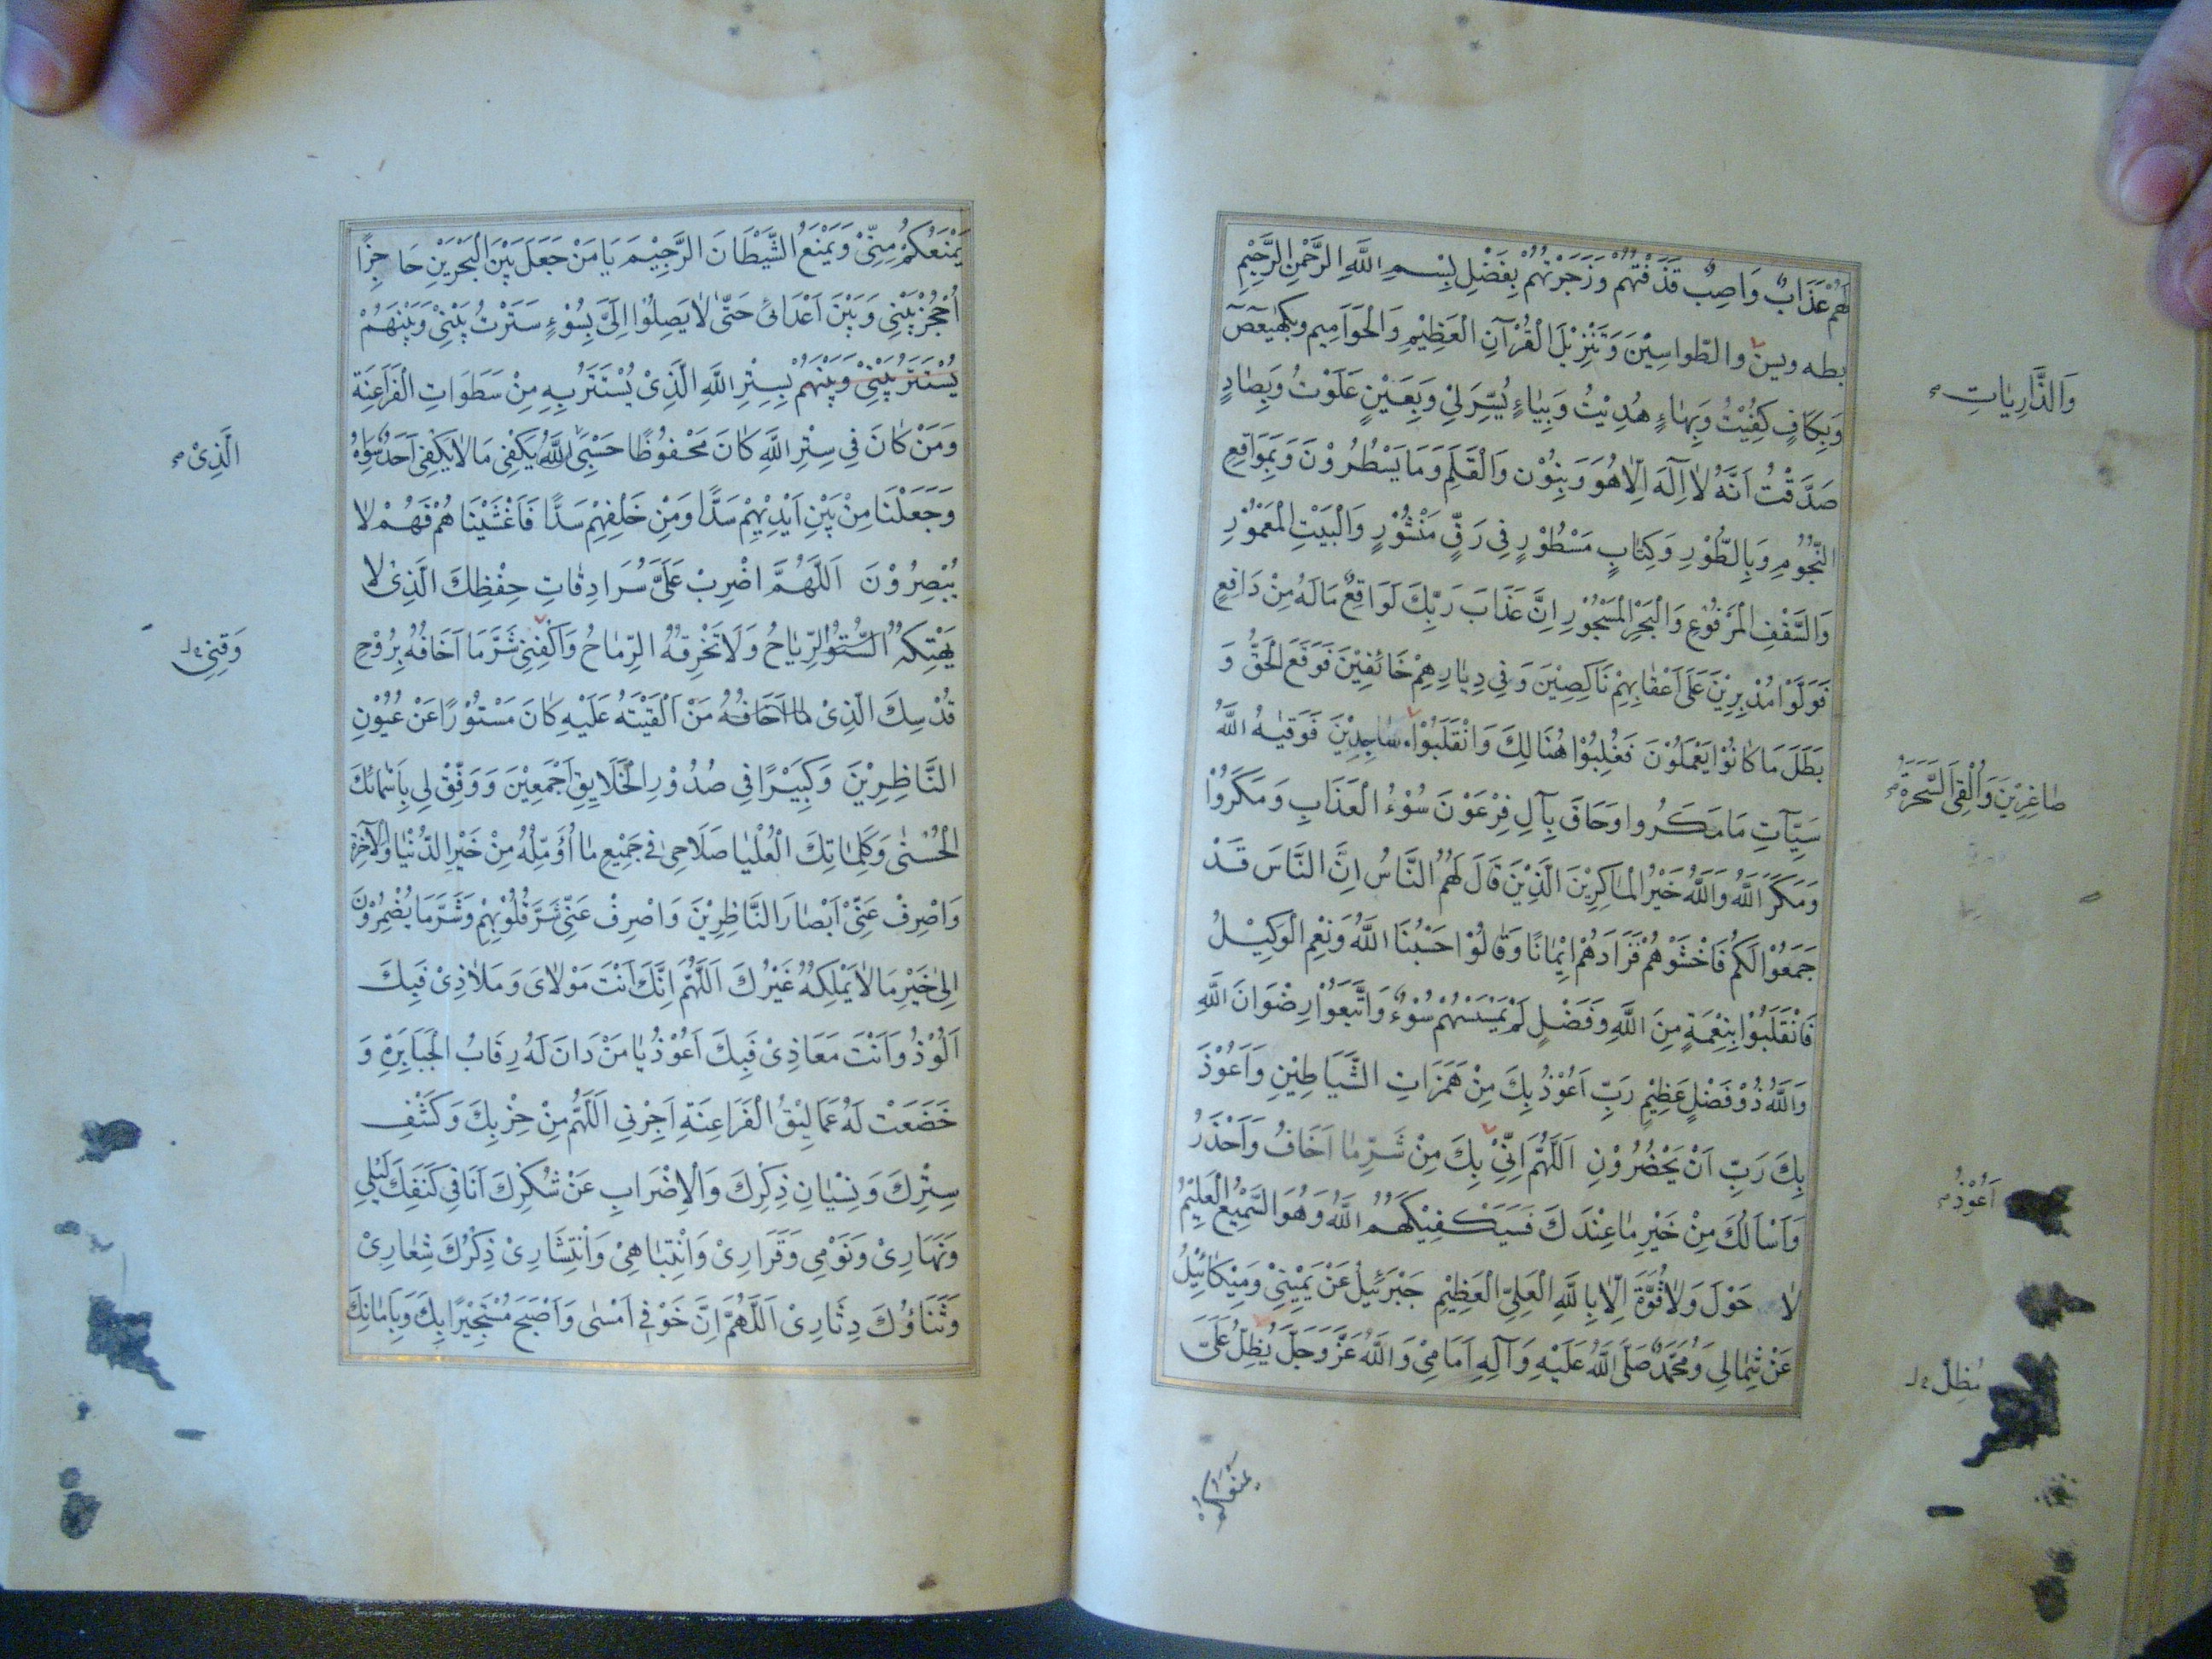 لَهُمْ عَذَابٌ وَاصِبٌ قَذَفْتُهُمْ وَزَجَرْتُهُمْ بِفَضْلِ بِسْمِ اللَّهِ الرَّحْمٰنِ الرَّحِيْمِ
بطه ويس والطّواسِيْنَ وَتَنْزِيْلَ الْقُرْآنِ الْعَظِيْمِ وَالْحَوَامِيم وبِكهٰيٰعص
وَالذَّارِيَاتِ
وَبِكَافٍ كُفِيْتُ وَبِهَاءٍ هُدِيْتُ وَبِيَاءٍ يُسِّرَ لِيْ وَبِعَيْنٍ عَلَوْتُ وَبِصَادٍ
صَدَّقْتُ اَنَّهُ لَا اِلٰهَ اِلَّا هُوَ وَبِنُوْن وَالْقَلَمِ وَمَا يَسْطُرُوْنَ وَبِمَوَاقِعِ
النُّجُوْمِ وَبِالطُّوْرِ وَكِتَابٍ مَسْطُوْرٍ فِي رَقٍّ مَنْشُوْرٍ وَالْبَيْتِ الْمَعْمُوْرِ
وَالسَّقْفِ الْمَرْفُوْعِ وَالْبَحْرِ الْمَسْجُوْرِ اِنَّ عَذَابَ رَبِّكَ لَوَاقِعٌ مَا لَهُ مِنْ دَافِعٍ
فَوَلَّوْا مُدْبِرِيْنَ عَلَى اَعْقَابِهِمْ نَاكِصِيْنَ وَفِي دِيَارِهِمْ خَائِفِيْنَ فَوَقَعَ الْحَقُّ وَ
بَطَلَ مَا كَانُوْا يَعْمَلُوْنَ فَغُلِبُوْا هُنَالِكَ وَانْقَلَبُوْا سَاجِدِيْنَ فَوَقٰيهُ اللَّهُ
صَاغِرِيْنَ وَاُلْقِيَ السَّحَرَةُ
سَيِّآتِ مَا مَكَرُوا وَحَاقَ بِآلِ فِرْعَوْنَ سُوْءُ الْعَذَابِ وَمَكَرُوْا
وَمَكَرَ اللَّهُ وَاللَّهُ خَيْرُ الْمَاكِرِيْنَ الَّذِيْنَ قَالَ لَهُمُ النَّاسُ اِنَّ النَّاسَ قَدْ
جَمَعُوْا لَكُمْ فَاخْشَوْهُمْ فَزَادَهُمْ اِيْمَانًا وَقَالُوْا حَسْبُنَا اللَّهُ وَنِعْمَ الْوَكِيْلُ
فَانْقَلَبُوْا بِنِعْمَةٍ مِنَ اللَّهِ وَفَضْلٍ لَمْ يَمْسَسْهُمْ سُوْءٌ وَاتَّبَعَوْا رِضْوَانَ اللَّهِ
وَاللَّهُ ذُوْ فَضْلٍ عَظِيْمٍ رَبِّ اَعُوْذُ بِكَ مِنْ هَمَزَاتِ الشَّيَاطِيْنِ وَاَعُوْذُ
بِكَ رَبِّ اَنْ يَحْضُرُوْنِ اَللَّهُمَّ اِنِّيْ بِكَ مِنْ شَرِّ مَا اَخَافُ وَاَحْذَرُ
اَعُوْذُ
وَاَسْاَلُكَ مِنْ خَيْرِ مَا عِنْدَكَ فَسَيَكْفِيْكَهُمُ اللَّهُ وَهُوَ السَّمِيْعُ الْعَلِيْمُ
لَا حَوْلَ وَلَا قُوَّةَ اِلَّا بِاللَّهِ الْعَلِيِّ الْعَظِيْمِ جَبْرَئِيْلُ عَنْ يَمِيْنِيْ وَمِيْكَائِيْلُ
عَنْ شِمَالِي وَمُحَمَّدٌ صَلَّى اللَّهُ عَلَيْهِ وَآلِهِ اَمَامِيْ وَاللَّهُ عَزَّ وَجَلَّ يُظِلُّ عَلَيَّ
مُظِلّ
يمنعكم
يَمْنَعُكُمْ مِنِّيْ وَيَمْنَعُ الشَّيْطَانَ الرَّجِيْمَ يَا مَنْ جَعَلَ بَيْنَ الْبَحْرَيْنِ حَاجِزًا
اُحْجُزْ بَيْنِي وَبَيْنَ اَعْدَائِي حَتّٰى لَا يَصِلُوْا اِلَيَّ بِسُوْءٍ سَتَرْتُ بَيْنِيْ وَبَيْنَهُمْ
يُسْتَتَرُ بَيْنِيْ وَبَيْنَهُمْ بِسِتْرِ اللَّهِ الَّذِيْ يُسْتَتَرُ بِهِ مِنْ سَطَوَاتِ الْفَرَاعِنَةِ
وَمَنْ كَانَ فِي سِتْرِ اللَّهِ كَانَ مَحْفُوْظًا حَسْبِيَ اللَّهُ يَكْفِي مَا لَا يَكْفِي اَحَدٌ سِوَاهُ
الَّذِيْ
وَجَعَلْنَا مِنْ بَيْنِ اَيْدِيْهِمْ سَدًّا وَمِنْ خَلْفِهِمْ سَدًّا فَاَغْشَيْنَاهُمْ فَهُمْ لَا
يُبْصِرُوْنَ اَللَّهُمَّ اضْرِبْ عَلَيَّ سُرَادِقَاتِ حِفْظِكَ الَّذِيْ لَا
يَهْتِكُهُ الرِّيَاحُ وَلَا تَخْرِقُهُ الرِّمَاحُ وَاَكْفِنِي شَرَّ مَا اَخَافُهُ بِرُوْحِ
وَقِنِي
قُدْسِكَ الَّذِيْ مَنْ اَلْقَيْتَهُ عَلَيْهِ كَانَ مَسْتُوْرًا عَنْ عُيُوْنِ
النَّاظِرِيْنَ وَكَبِيْرًا فِي صُدُوْرِ الْخَلَايِقِ اَجْمَعِيْنَ وَوَفِّقْ لِي بِاَسْمَائِكَ
الْحُسْنٰى وَكَلِمَاتِكَ الْعُلْيَا صَلَاحِيْ فِي جَمِيْعِ مَا اُؤَمِّلُهُ مِنْ خَيْرِ الدُّنْيَا وَالْآخِرَةِ
وَاصْرِفْ عَنِّيْ اَبْصَارَ النَّاظِرِيْنَ وَاصْرِفْ عَنِّيْ شَرَّ قُلُوْبِهِمْ وَشَرَّ مَا يُضْمِرُوْنَ
اِلٰى خَيْرِ مَا لَا يَمْلِكُهُ غَيْرُكَ اَللَّهُمَّ اِنَّكَ اَنْتَ مَوْلَايَ وَمَلَاذِيْ فَبِكَ
اَلُوْذُ وَاَنْتَ مَعَاذِيْ فَبِكَ اَعُوْذُ يَا مَنْ دَانَ لَهُ رِقَابُ الْجَبَابِرَةِ وَ
خَضَعَتْ لَهُ عَمَالِيْقُ الْفَرَاعِنَةِ اَجِرْنِي اَللَّهُمَّ مِنْ خِزْيِكَ وَكَشْفِ
سِتْرِكَ وَنِسْيَانِ ذِكْرِكَ وَالْاِضْرَابِ عَنْ شُكْرِكَ اَنَا فِي كَنَفِكَ لَيْلِي
وَنَهَارِيْ وَنَوْمِي وَقَرَارِيْ وَانْتِبَاهِيْ وَانْتِشَارِيْ ذِكْرُكَ شِعَارِيْ
وَثَنَاؤُكَ دِثَارِيْ اَللَّهُمَّ اِنَّ خَوْفِي اَمْسٰى وَاَصْبَحَ مُسْتَجِيْرًا بِكَ وَبِاَمَانِكَ